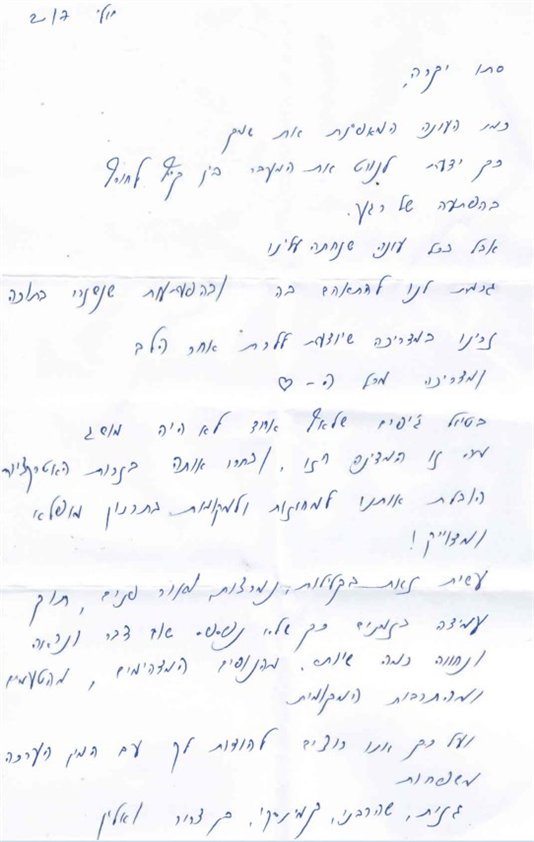 יולי 217
סתו יקרה,
כמו העונה המאפינת את שמך
כך ידעת לנווט את המעבר בין קיץ לחורף
בהפתעה של רגע.
אבל בכל עונה שנחתה עלינו
גרמת לנו להתאהב בה ובהפתעות שבתוכה
זכינו במדריכה שיודעת ללכת אחר הלב
ומדריכה מכל ה-♡
בטיול ג'יפים שלאף אחד לא היה מושג
מה זו המדינה הזו, ובחרו אותה בזכות האטרקציות
הובלת אותנו למחוזות ולמקומות בתכנון מופלא
ומדוייק!
עשית זאת בקלילות, נמרצות, מאור פנים, תוך
עמידה בזמנים כך שלא נפספס שום דבר ונראה
ונחווה כמה שיותר. מהנופים המדהימים, מהטעמים
ומהתרבות המקומית
ועל כך אנו רוצים להודות לך עם המון הערכה
משפחות
גנית, שהרבני, קמינסקי, בן צרור ואלין